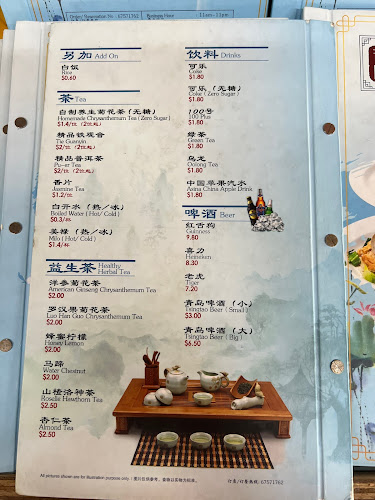 Order / Reservation Tel : 67571762
Business Hour
11am - 11pm
另加 Add On
白饭
Rice
$0.60
茶 Tea
自制养生菊花茶 (无糖)
Homemade Chrysanthemum Tea ( Zero Sugar )
精品铁观音
Tie Guanyin
精品普洱茶
Pu-er Tea
香片
Jasmine Tea
白开水 (热/冰)
Boiled Water ( Hot/ Cold )
美禄 (热/冰)
Milo ( Hot/ Cold )
益生茶 Healthy Herbal Tea
洋参菊花茶
American Ginseng Chrysanthemum Tea
$2.00
罗汉果菊花茶
Luo Han Guo Chrysanthemum Tea
$2.00
蜂蜜柠檬
Honey Lemon
$2.00
马蹄
Water Chestnut
$2.00
山楂洛神茶
Roselle Hawthorn Tea
$2.50
杏仁茶
Almond Tea
$2.50
饮料 Drinks
可乐
Coke
$1.80
可乐 (无糖)
Coke ( Zero Sugar )
$1.80
100号
100 Plus
$1.80
绿茶
Green Tea
$1.80
乌龙
Oolong Tea
$1.80
中国苹果汽水
Asina China Apple Drink
$1.80
啤酒 Beer
红舌狗
Guinness
9.80
喜力
Heineken
8.30
老虎
Tiger
7.20
青岛啤酒 (小)
Tsingtao Beer ( Small )
$3.00
青岛啤酒 (大)
Tsingtao Beer ( Big )
$6.50
All pictures shown are for illustration purpose only
订座/订餐热线: 67571762